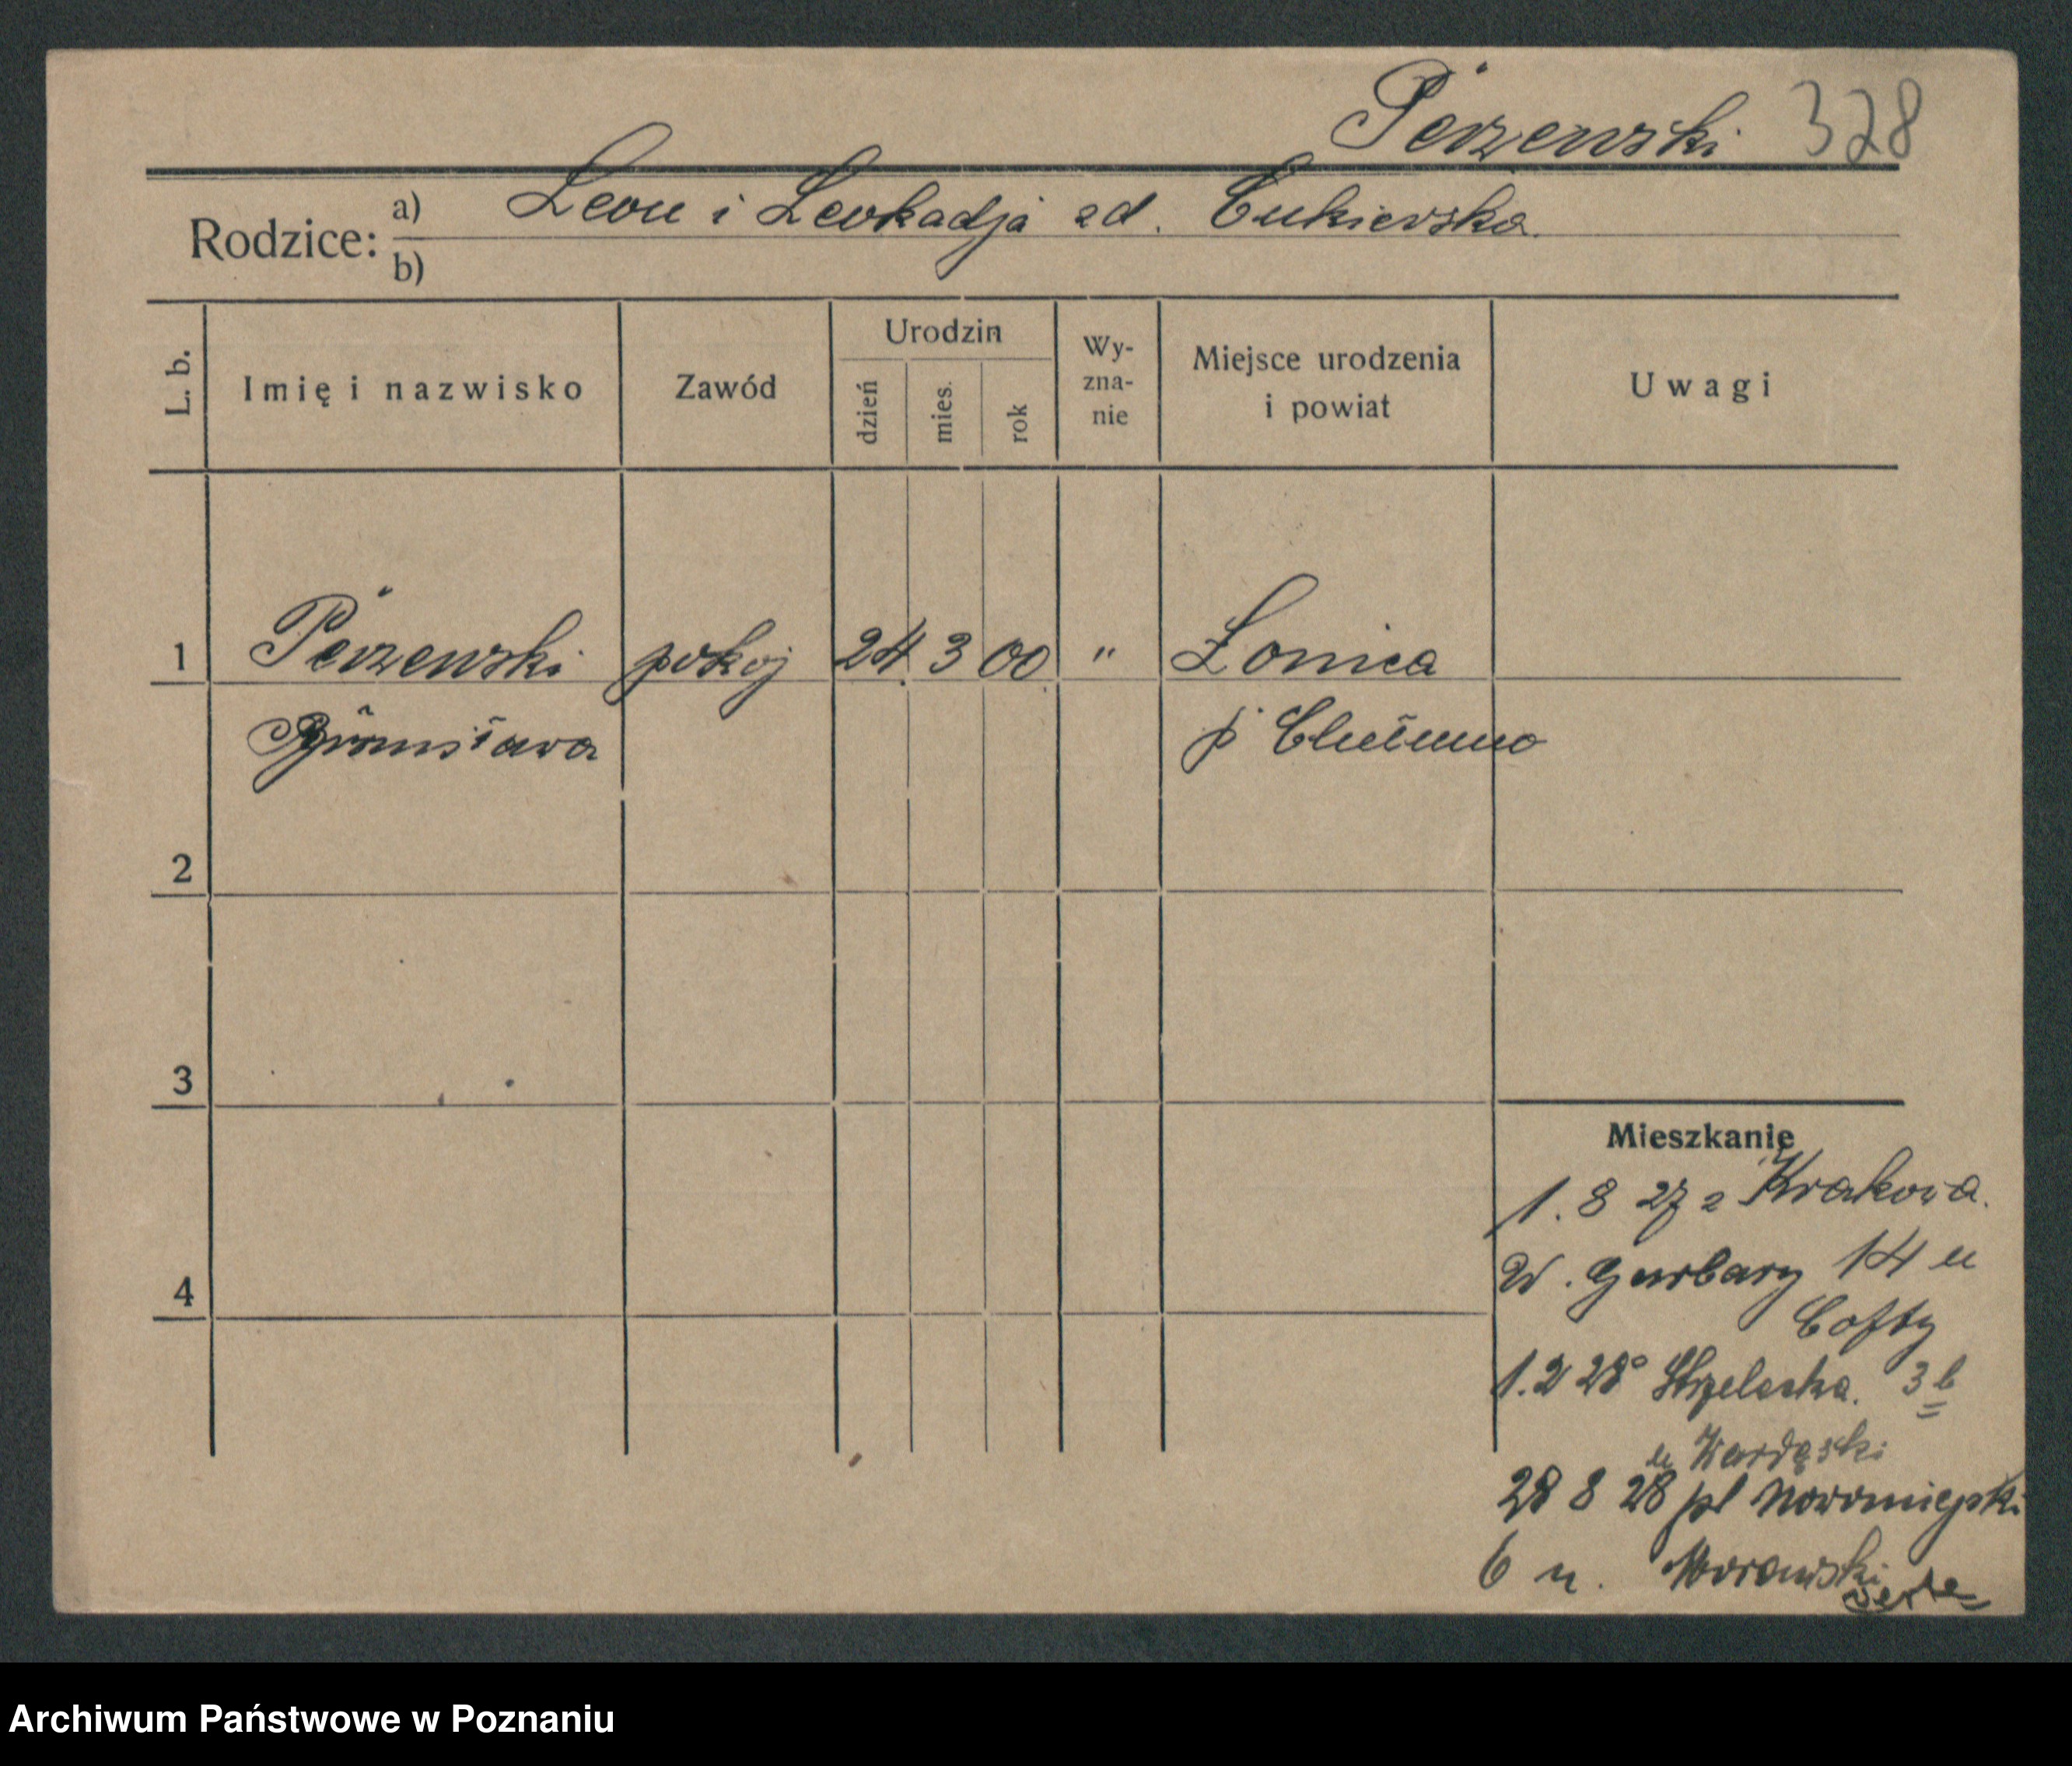 Perzewski 328
Rodzice: a) Leon i Leokadja zd. Cukierska.
b)
L. b. Imię i nazwisko Zawód Urodzin dzień mies. rok Wy-zna-nie Miejsce urodzenia i powiat Uwagi
1 Perzewski pokoj 24. 3 00. " Łonica
Bronisława p Chełmno
2
3
4
Mieszkanie
1.8 27 z Krakowa.
W. Garbary 14 u
Cofty
1.2 28 Strzelecka. 3b
u Wardęski
28 8 28 pl Nowomiejski
6 u. Morawski
verte
Archiwum Państwowe w Poznaniu